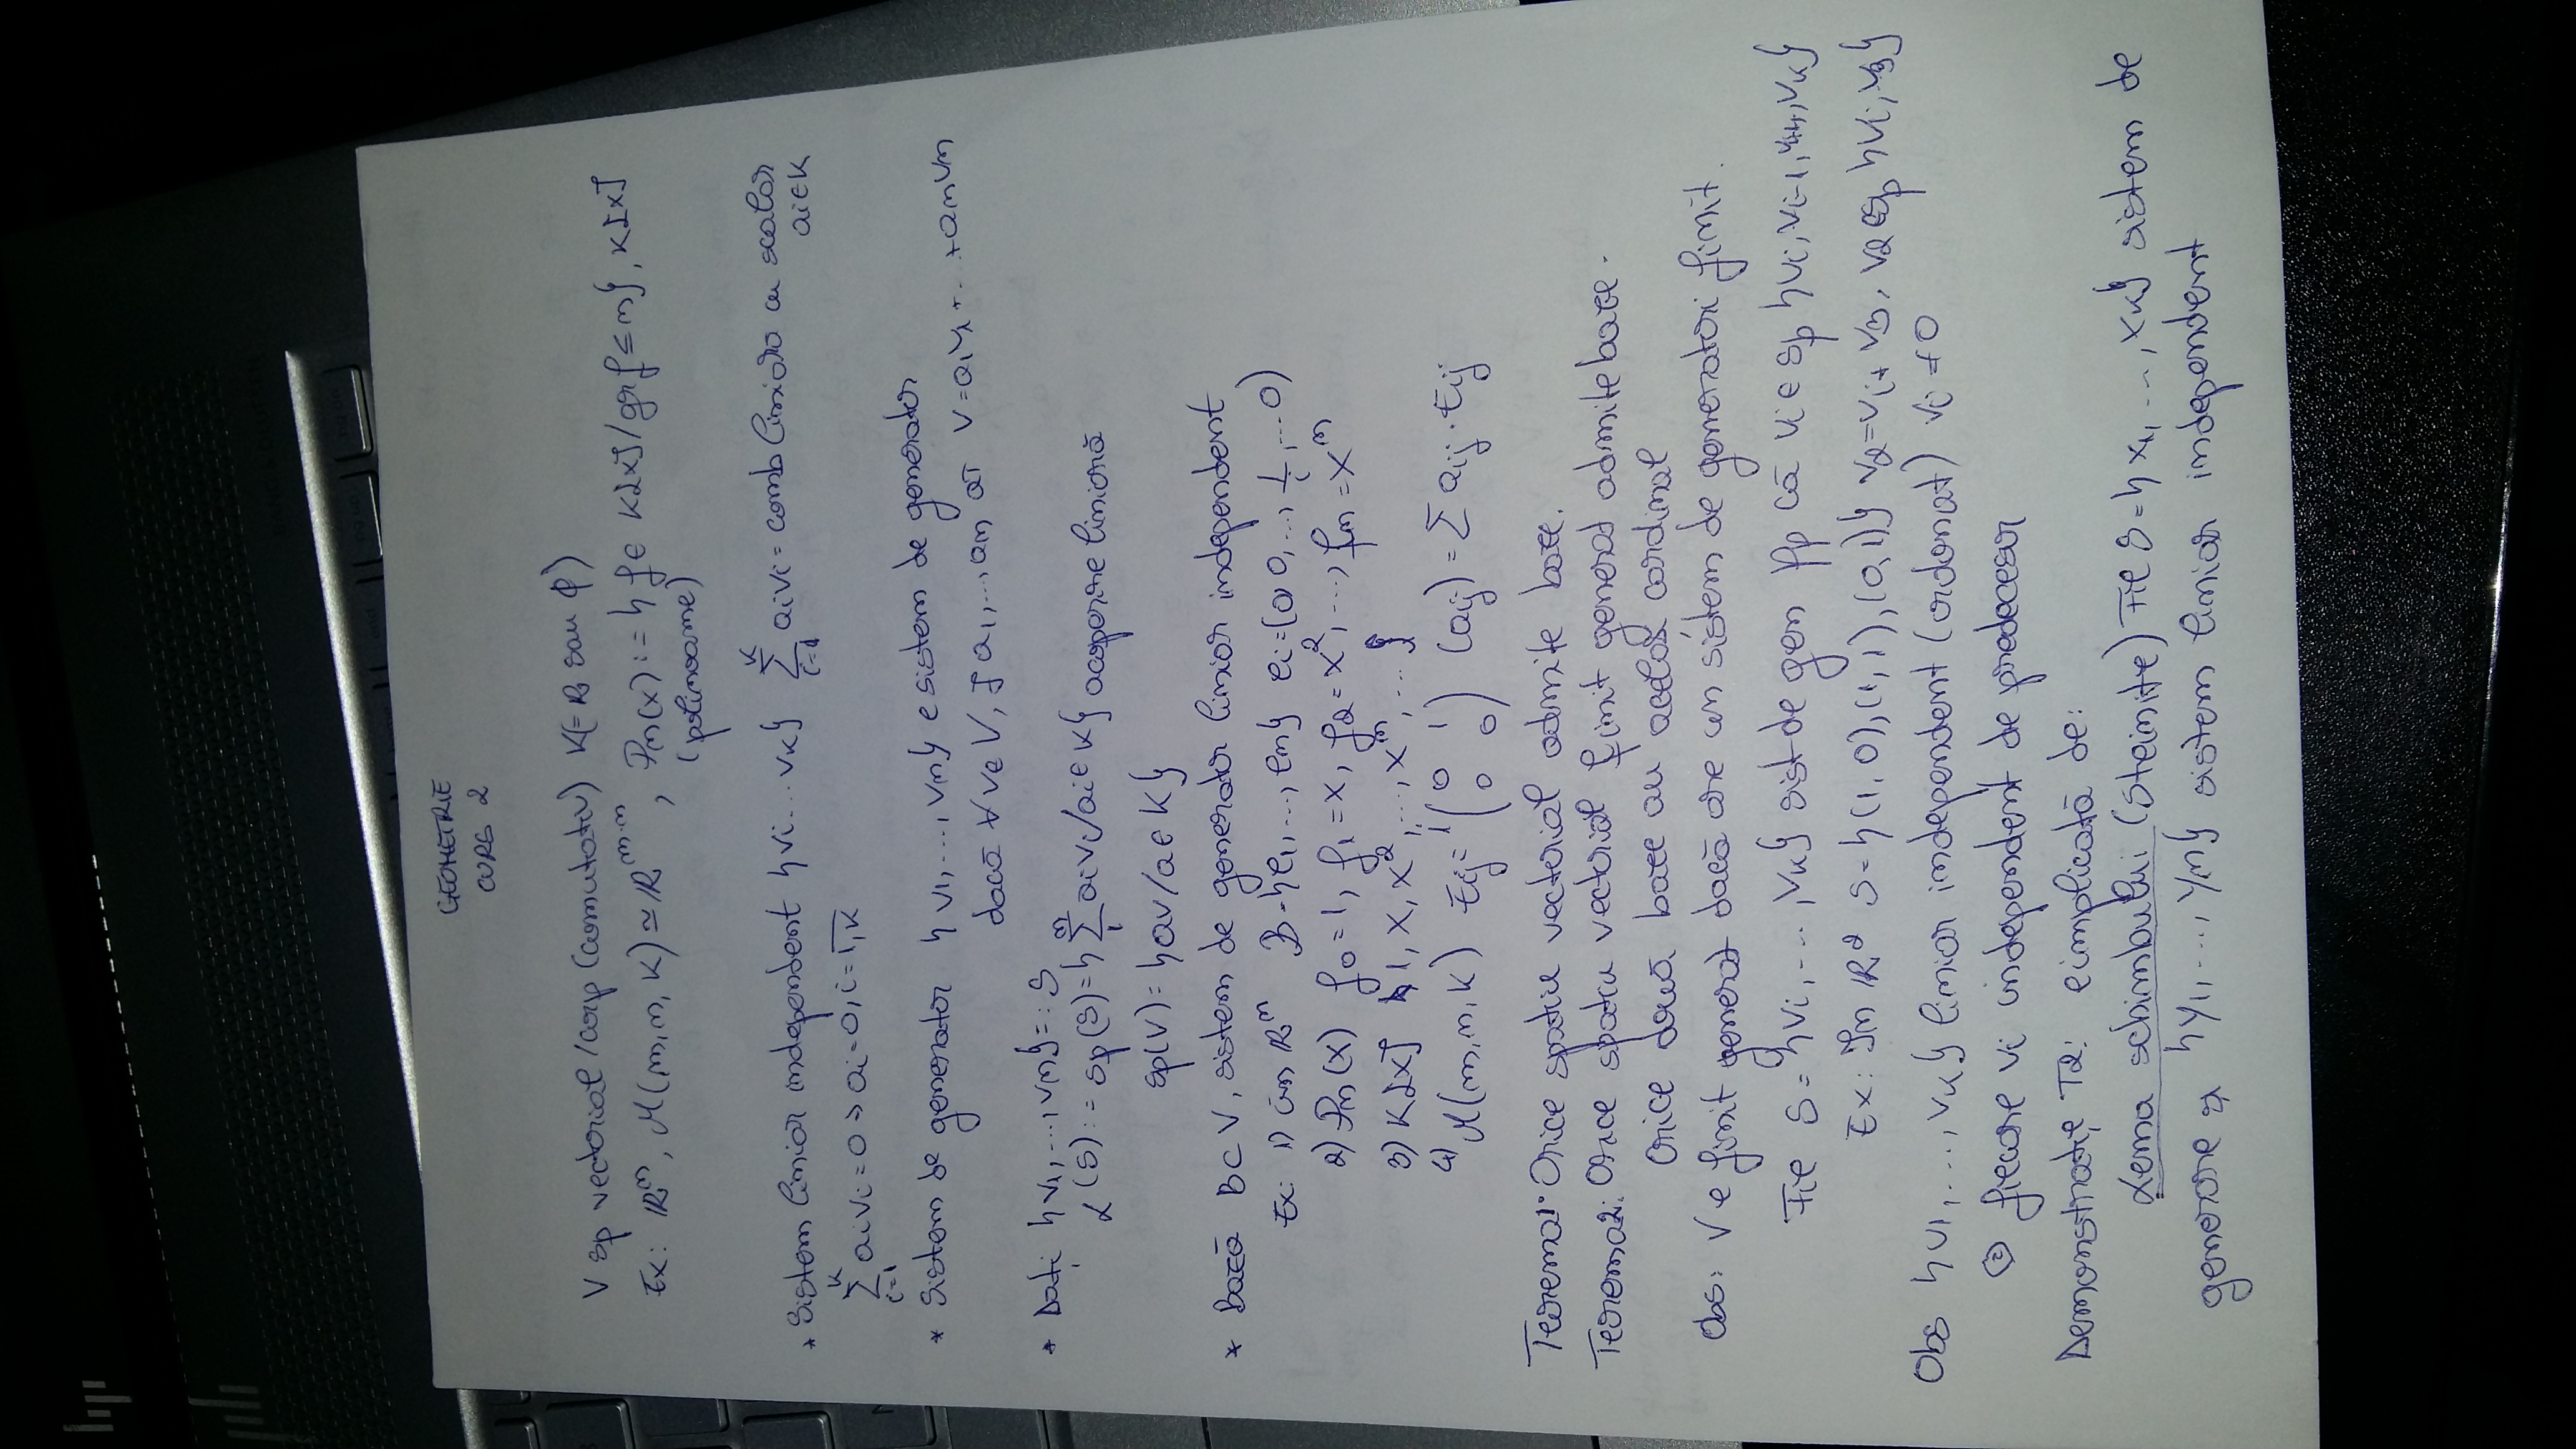 hp
BANG & OLUFSEN
home
end
pg up
pg dn
GEOMETRIE
CURS 2
V sp vectorial /corp (comutativ) K(=R sau ℂ)
Ex: ℝⁿ, M(m,n, K) ≃ ℝᵐ·ⁿ, Pn(x) := { f ∈ K[x] / gr f ≤ n}, K[x]
(polinoame)
* Sistem liniar independent {vi...vk} ∑ᵢ₌₁ᴷ aivi = comb liniara cu scalar
ai∈K
∑ᵢ₌₁ᴷ aivi=0 => ai=0, i=1,K
* Sistem de generator {v1, ..., vn} e sistem de generator
dacă ∀ v∈V, ∃ a1,..., an aî V=a1v1+...+anvn
* Dați {v1, ..., vn} =: S
L(S) := sp(S) = {∑₁ⁿ aivi/ai∈K} acoperire liniară
sp(v) = {av/a∈K}
* Bază B⊂V, sistem de generator liniar independent
Ex: 1) în ℝⁿ B={e1, ..., en} ei=(0, 0, ..., 1, ...0)
i
2) Pn(X) f0=1, f1=x, f2=x², ..., fn=xⁿ
3) K[x] {1, x, x², ..., xⁿ, ...}
4) M(m,n,K) Eij= i (0 1
0 0) (aij) = ∑ aij · Eij
Teorema1: Orice spatiu vectorial admite baze.
Teorema2: Orice spatiu vectorial finit generat admite baze.
Orice două baze au acelaș cardinal
Obs: V e finit generat dacă are un sistem de generatori finit.
Fie S={vi, ..., vk} sist de gen pp că vi∈ sp {vi, vi-1, vi+1, vk}
Ex: În ℝ² S={(1,0),(1,1),(0,1)} v2=vi+v3, v2∈sp {vi, v3}
Obs {v1, ..., vk} liniar independent (ordonat) vi≠0
fiecare vi independent de predecesor
Demonstrație T2: e implicată de:
Lema schimbului (Steinite) Fie S={x1, ..., xk} sistem de
generare și {y1, ..., yn} sistem liniar independent